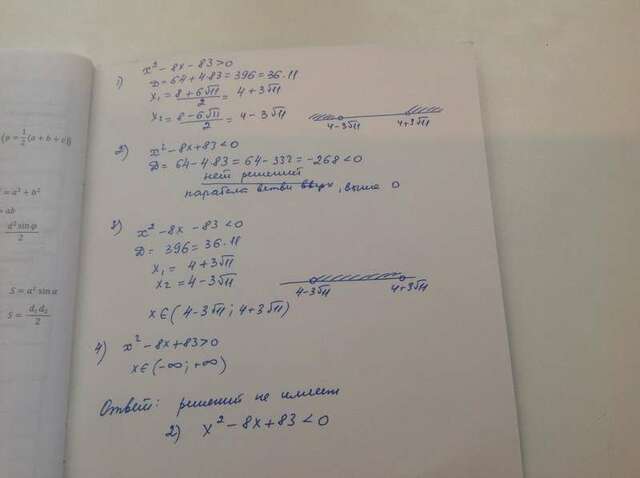 1) x² - 8x - 83 > 0
D = 64 + 4·83 = 396 = 36·11
x₁ = (8 + 6√11)/2 = 4 + 3√11
x₂ = (8 - 6√11)/2 = 4 - 3√11
4-3√11 4+3√11
2) x² - 8x + 83 < 0
D = 64 - 4·83 = 64 - 332 = -268 < 0
нет решений
парабола ветви вверх, выше 0
3) x² - 8x - 83 < 0
D = 396 = 36·11
x₁ = 4 + 3√11
x₂ = 4 - 3√11
4-3√11 4+3√11
x∈(4-3√11; 4+3√11)
4) x² - 8x + 83 > 0
x∈(-∞; +∞)
Ответ: решений не имеет
2) x² - 8x + 83 < 0
(p = 1/2(a + b + c))
= a² + b²
= ab
d² sin φ / 2
S = a² sin α
S = d₁d₂/2